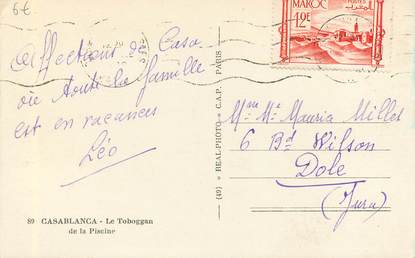 6€
MAROC
POSTES
12F
Affections de Casa
où toute la famille
est en vacances
Léo
(49) * REAL-PHOTO * C.A.P. * PARIS *
Mme Maurice Millet
6 Bd Wilson
Dole
(Jura)
89 CASABLANCA - Le Toboggan
de la Piscine